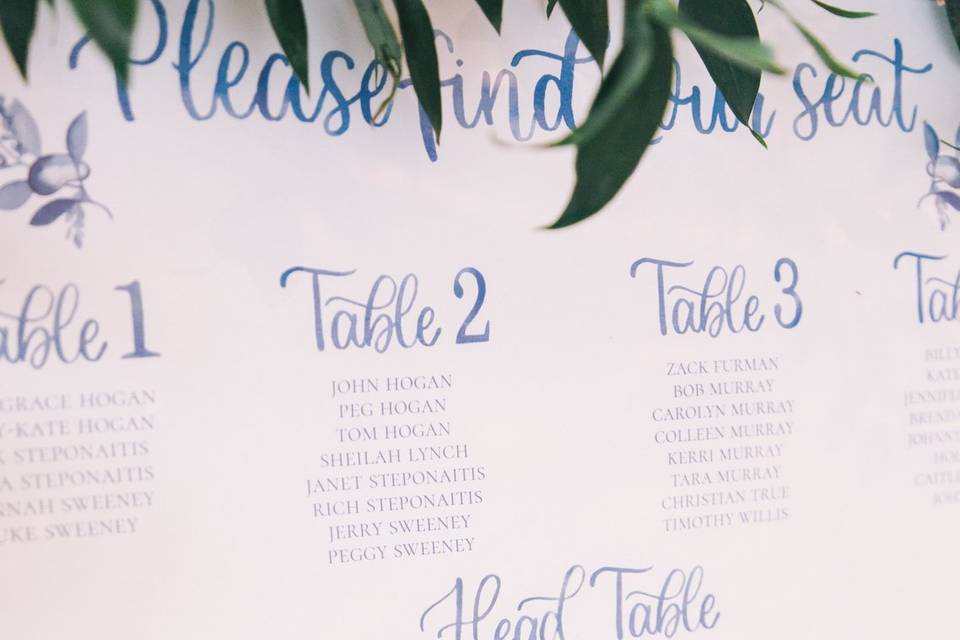 Please find your seat
Table 1
GRACE HOGAN
Y-KATE HOGAN
K STEPONAITIS
A STEPONAITIS
NNAH SWEENEY
UKE SWEENEY
Table 2
JOHN HOGAN
PEG HOGAN
TOM HOGAN
SHEILAH LYNCH
JANET STEPONAITIS
RICH STEPONAITIS
JERRY SWEENEY
PEGGY SWEENEY
Table 3
ZACK FURMAN
BOB MURRAY
CAROLYN MURRAY
COLLEEN MURRAY
KERRI MURRAY
TARA MURRAY
CHRISTIAN TRUE
TIMOTHY WILLIS
Tab
BILLY
KATE
JENNIFE
BRENDA
JOHNNY
HOL
CAITL
JOS
Head Table